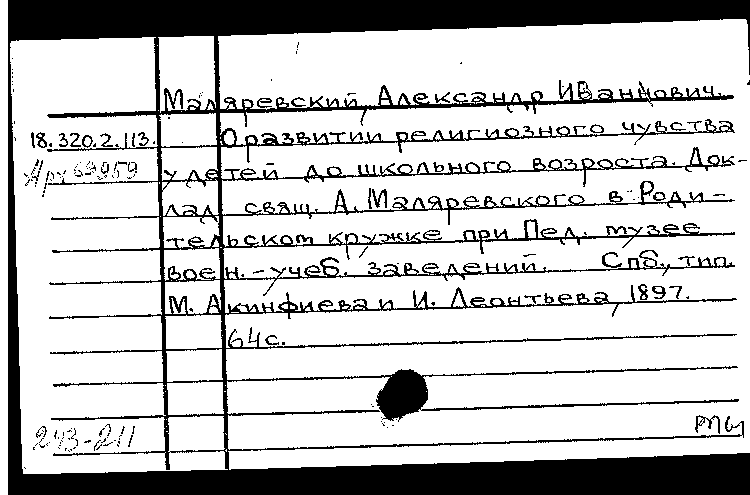 Маляревский, Александр Иваннович.
18.320.2.113. О развитии религиозного чувства
Арх 69959 у детей до школьного возроста. Док-
лад свящ. А. Маляревского в Роди-
тельском кружке при Пед. музее
воен.-учеб. заведений. Спб., тип.
М. Акинфиева и И. Леонтьева, 1897.
64с.
243-211